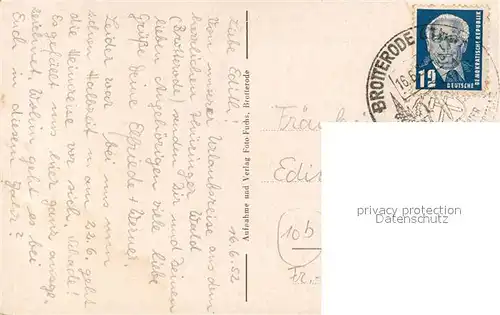 16.6.52
Liebe Edith!
Von unserer Urlaubsreise aus dem
herrlichen Thüringer Wald
(Brotterode) senden Dir und Deinen
lieben Angehörigen viele liebe
Grüße Deine Elfriede + Werner.
Leider war bei uns nun
schon Halbzeit u. am 22.6. geht
die Heimreise vor sich. Schade!
Es gefällt uns hier ganz ausge-
zeichnet. Wohin geht es bei
Euch in diesem Jahr?
Aufnahme und Verlag Foto-Fuchs, Brotterode
BROTTERODE
16.6.
12
DEUTSCHE
DEMOKRATISCHE REPUBLIK
Fräulein
Edit
10b
privacy protection
Datenschutz